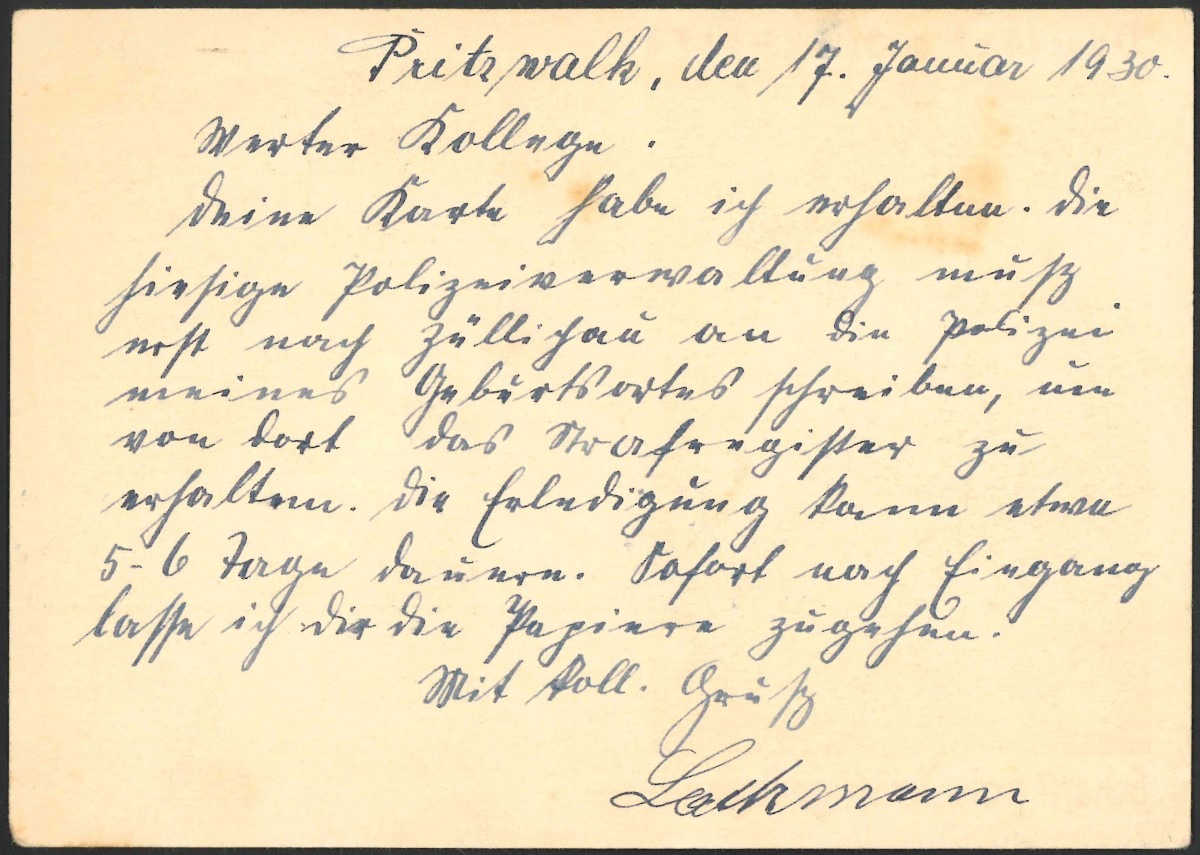 Pritzwalk, den 17. Januar 1930.
Werter Kollege.
Deine Karte habe ich erhalten. Die
hiesige Polizeiverwaltung muß
erst nach Züllichau an die Polizei
meines Geburtsortes schreiben, um
von dort das Strafregister zu
erhalten. Die Erledigung kann etwa
5-6 Tage dauern. Sofort nach Eingang
lasse ich dir die Papiere zugehen.
Mit koll. Gruß
Lackmann